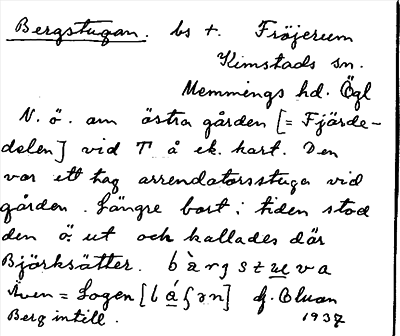 Bergstugan. bs t. Fröjerum
Kimstads sn.
Memmings hd. Ögl
N. ö. om östra gården [= Fjärde-
delen] vid T å ek. kart. Den
var ett tag arrendatorsstuga vid
gården. Längre bort i tiden stod
den ö. ut och kallades där
Björksätter. bàrjstuva
Även = Logen [låʃən] jf. Eluan
Berg intill. 1937